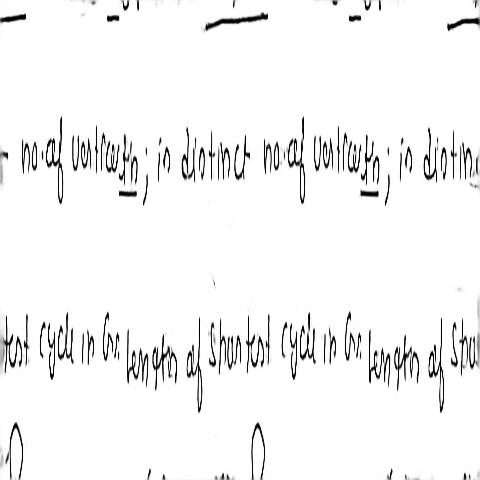 no. of vertices in ; in distinct no. of vertices in ; in distin
test cycle in G. Length of Shortest cycle in G. Length of Sho